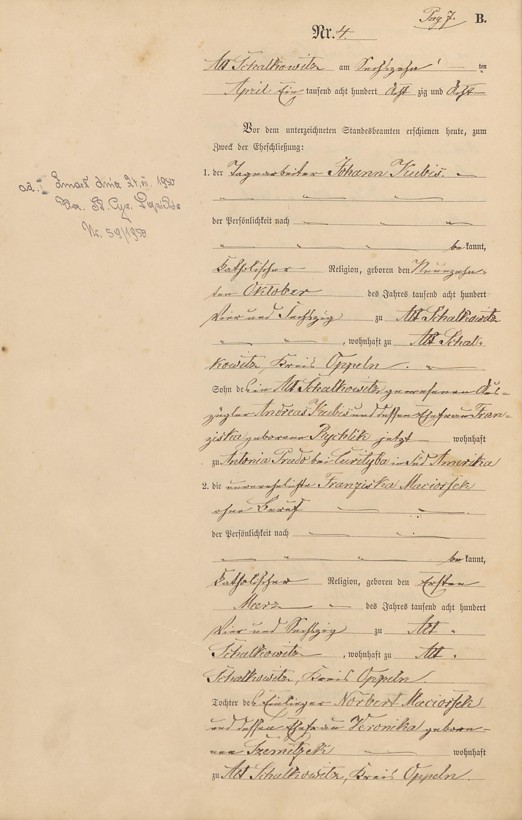 Pag 7. B.
Nr. 4.
Alt Schalkowitz am Sechszehn ten
April Ein tausend acht hundert Acht zig und Acht
Vor dem unterzeichneten Standesbeamten erschienen heute, zum
Zweck der Eheschließung:
1. der Tagearbeiter Johann Kubis
der Persönlichkeit nach
be kannt,
Katholischer Religion, geboren den Neunzehn-
ten Oktober des Jahres tausend acht hundert
Vier und Sechszig zu Alt Schalkowitz
, wohnhaft zu Alt Schal-
kowitz, Kreis Oppeln.
Sohn des in Alt Schalkowitz gewesenen Aus-
züglers Andreas Kubis und dessen Ehefrau Fran-
ziska geborene Rychlik jetzt wohnhaft
zu Antonia Prado bei Curityba in Süd Amerika
2. die unverehelichte Franziska Maciossek
ohne Beruf
der Persönlichkeit nach
be kannt,
Katholischer Religion, geboren den Ersten
März des Jahres tausend acht hundert
Vier und Sechszig zu Alt
Schalkowitz, wohnhaft zu Alt
Schalkowitz, Kreis Oppeln.
Tochter des Einlieger Norbert Maciossek
und dessen Ehefrau Veronika gebore-
nen wohnhaft
zu Alt Schalkowitz, Kreis Oppeln.
ad. 1 Zmarł dnia 1950
Nr. 59/1950